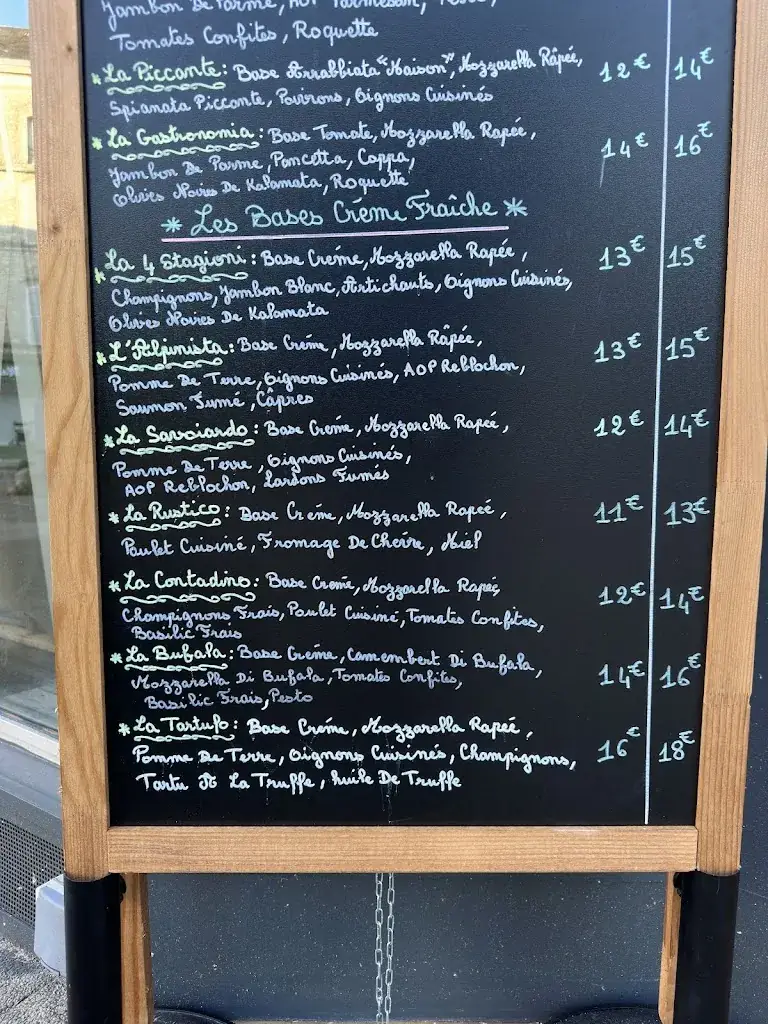 Jambon De Parme, AOP Parmesan, Pesto,
Tomates Confites, Roquette
* La Piccante : Base Arrabbiata "Maison", Mozzarella Râpée, 12€ 14€
Spianata Piccante, Poivrons, Oignons Cuisinés
* La Gastronomia : Base Tomate, Mozzarella Rapée, 14€ 16€
Jambon De Parme, Pancetta, Coppa,
Olives Noires De Kalamata, Roquette
* Les Bases Crème Fraîche *
* La 4 Stagioni : Base Crème, Mozzarella Rapée, 13€ 15€
Champignons, Jambon Blanc, Artichauts, Oignons Cuisinés,
Olives Noires De Kalamata
* L'Alpinista : Base Crème, Mozzarella Râpée, 13€ 15€
Pomme De Terre, Oignons Cuisinés, AOP Reblochon,
Saumon Fumé, Câpres
* La Savoiardo : Base Crème, Mozzarella Rapée, 12€ 14€
Pomme De Terre, Oignons Cuisinés,
AOP Reblochon, Lardons Fumés
* La Rustico : Base Crème, Mozzarella Rapée, 11€ 13€
Poulet Cuisiné, Fromage De Chèvre, Miel
* La Contadino : Base Crème, Mozzarella Rapée, 12€ 14€
Champignons Frais, Poulet Cuisiné, Tomates Confites,
Basilic Frais
* La Bufala : Base Crème, Camembert Di Bufala, 14€ 16€
Mozzarella Di Bufala, Tomates Confites,
Basilic Frais, Pesto
* La Tartufo : Base Crème, Mozzarella Rapée, 16€ 18€
Pomme De Terre, Oignons Cuisinés, Champignons,
Tartu A La Truffe, huile De Truffe